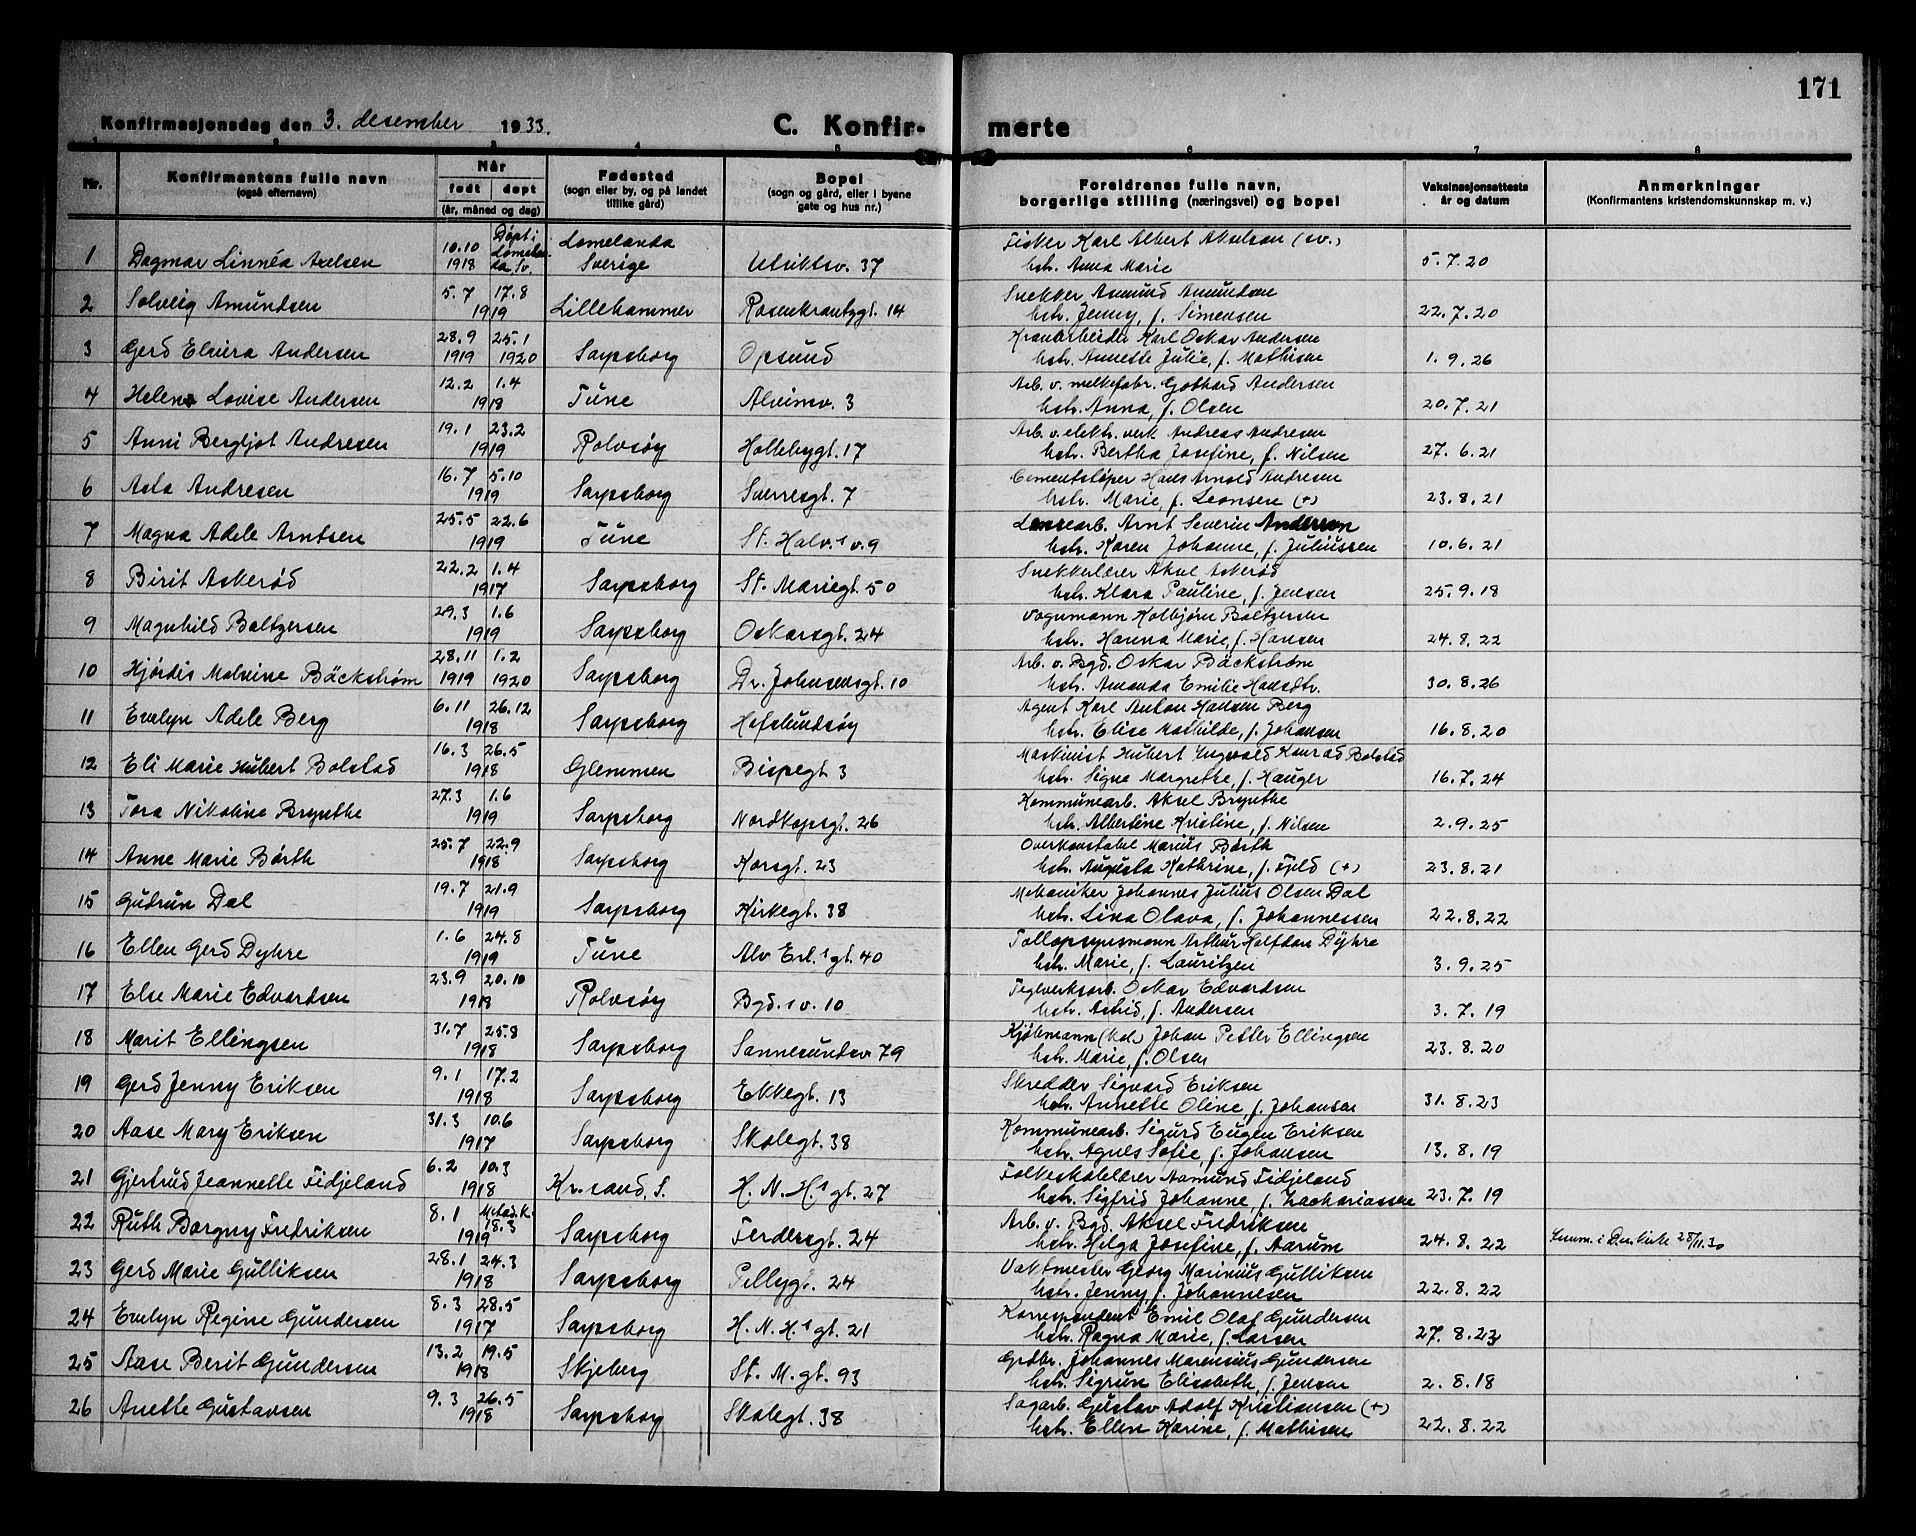 171
Konfirmasjonsdag den 3. desember 1933.
C. Konfir- merte
1 2 3 4 5 6 7 8
Nr. Konfirmantens fulle navn (også efternavn) Når født døpt (år, måned og dag) Fødested (sogn eller by, og på landet tillike gård) Bopel (sogn og gård, eller i byene gate og hus nr.) Foreldrenes fulle navn, borgerlige stilling (næringsvei) og bopel Vaksinasjonsattests år og datum Anmerkninger (Konfirmantens kristendomskunnskap m. v.)
1 Dagmar Linnéa Axelsen 10.10 1918 Døpt i Lomelanda Sv. Lomelanda Sverige Utsiktsv. 37 Fisker Karl Albert Akselson (sv.)
hstr. Anna Marie 5.7.20
2 Solveig Amundsen 5.7 17.8 1919 Lillehammer Rosenkrantzgt. 14 Snekker Asmund Amundsen
hstr. Jenny, f. Simensen 22.7.20
3 Gerd Elvira Andersen 28.9 1919 25.1 1920 Sarpsborg Opsund Kranarbeider Karl Oskar Andersen
hstr. Annette Julie, f. Mathisen 1.9.26
4 Helene Lovise Andersen 12.2 1.4 1918 Tune Alvimv. 3 Arb. v. melkefabr. Gothard Andersen
hstr. Anna, f. Olsen 20.7.21
5 Anni Bergljot Andresen 19.1 23.2 1919 Rolvsøy Hollebygt. 17 Arb. v. elektr. verk Andreas Andresen
hstr. Bertha Josefine, f. Nilsen 27.6.21
6 Asta Andresen 16.7 5.10 1919 Sarpsborg Sverresgt. 7 Cementstøper Hans Arnold Andresen
hstr. Marie f. Leonsen (+) 23.8.21
7 Magna Adele Arntsen 25.5 22.6 1919 Tune St. Halv.s v. 9 Lensearb. Arnt Severin Andersen
hstr. Karen Johanne, f. Juliussen 10.6.21
8 Birit Askerød 22.2 1.4 1917 Sarpsborg St. Mariegt. 50 Snekkerlærer Aksel Askerød
hstr. Klara Pauline, f. Jensen 25.9.18
9 Magnhild Baltzersen 29.3 1.6 1919 Sarpsborg Oskarsgt. 24 Vognmann Kolbjørn Baltzersen
hstr. Hanna Marie, f. Hansen 24.8.22
10 Hjørdis Malvine Bäckstrøm 28.11 1919 1.2 1920 Sarpsborg Dr. Johnsensgt. 10 Arb. v. Bgd. Oskar Bäckstrøm
hstr. Amanda Emilie Hansdtr. 30.8.26
11 Evelyn Adele Berg 6.11 26.12 1918 Sarpsborg Hafslundsøy Agent Karl Anton Hansen Berg
hstr. Elise Mathilde, f. Johansen 16.8.20
12 Eli Marie Hubert Bolstad 16.3 26.5 1918 Glemmen Bispegt. 3 Maskinist Hubert Ingvald Konrad Bolstad
hstr. Signe Margrethe, f. Hauger 16.7.24
13 Tora Nikoline Brynthe 27.3 1.6 1919 Sarpsborg Nordkapsgt. 26 Kommunearb. Aksel Brynthe
hstr. Albertine Kristine, f. Nilsen 2.9.25
14 Anne Marie Børth 25.7 22.9 1918 Sarpsborg Korsgt. 23 Overkonstabel Marius Børth
hstr. Augusta Kathrine, f. Fjeld (+) 23.8.21
15 Gudrun Dal 19.7 21.9 1919 Sarpsborg Kirkegt. 38 Mekaniker Johannes Julius Olsen Dal
hstr. Lina Olava, f. Johannessen 22.8.22
16 Ellen Gerd Dyhre 1.6 24.8 1919 Tune Alv Erl.s gt. 40 Tollopsynsmann Arthur Halfdan Dyhre
hstr. Marie, f. Lauritzen 3.9.25
17 Else Marie Edvardsen 23.9 20.10 1918 Rolvsøy Bgd.s v. 10 Teglverksarb. Oskar Edvardsen
hstr. Astrid, f. Andersen 3.7.19
18 Marit Ellingsen 31.7 25.8 1918 Sarpsborg Sannesundsv 79 Kjøbmann (kol.) Johan Petter Ellingsen
hstr. Marie, f. Olsen 23.8.20
19 Gerd Jenny Eriksen 9.1 17.2 1918 Sarpsborg Ekkegt. 13 Skredder Sigvard Eriksen
hstr. Annette Oline, f. Johansen 31.8.23
20 Aase Mary Eriksen 31.3 10.6 1917 Sarpsborg Skolegt. 38 Kommunearb. Sigurd Eugen Eriksen
hstr. Agnes Sofie, f. Johansen 13.8.19
21 Gjertrud Jeannette Fidjeland 6.2 10.3 1918 Kr.sand, S. H. N. H.s gt. 27 Folkeskolelærer Aamund Fidjeland
hstr. Sigfrid Johanne, f. Zachariassen 23.7.19
22 Ruth Borgny Fredriksen 8.1 18.3 1919 Sarpsborg Ferdersgt. 24 Arb. v. Bgd. Aksel Fredriksen
hstr. Helga Josefine, f. Aarum 24.8.22 28/11.30
23 Gerd Marie Gulliksen 28.1 24.3 1918 Sarpsborg Pellygt. 24 Vaktmester Georg Marinius Gulliksen
hstr. Jenny, f. Johannesen 22.8.22
24 Evelyn Regine Gundersen 8.3 28.5 1917 Sarpsborg H. N. H.s gt. 21 Korrespondent Emil Olaf Gundersen
hstr. Ragna Marie, f. Larsen 27.8.23
25 Aase Berit Gundersen 13.2 19.5 1918 Skjeberg St. M. gt. 93 Grdbr. Johannes Marensius Gundersen
hstr. Sigrun Elisabeth, f. Jensen 2.8.18
26 Anette Gustavsen 9.3 26.5 1918 Sarpsborg Skolegt. 38 Sagarb. Gustav Adolf Kristiansen (+)
hstr. Ellen Karine, f. Mathisen 22.8.22